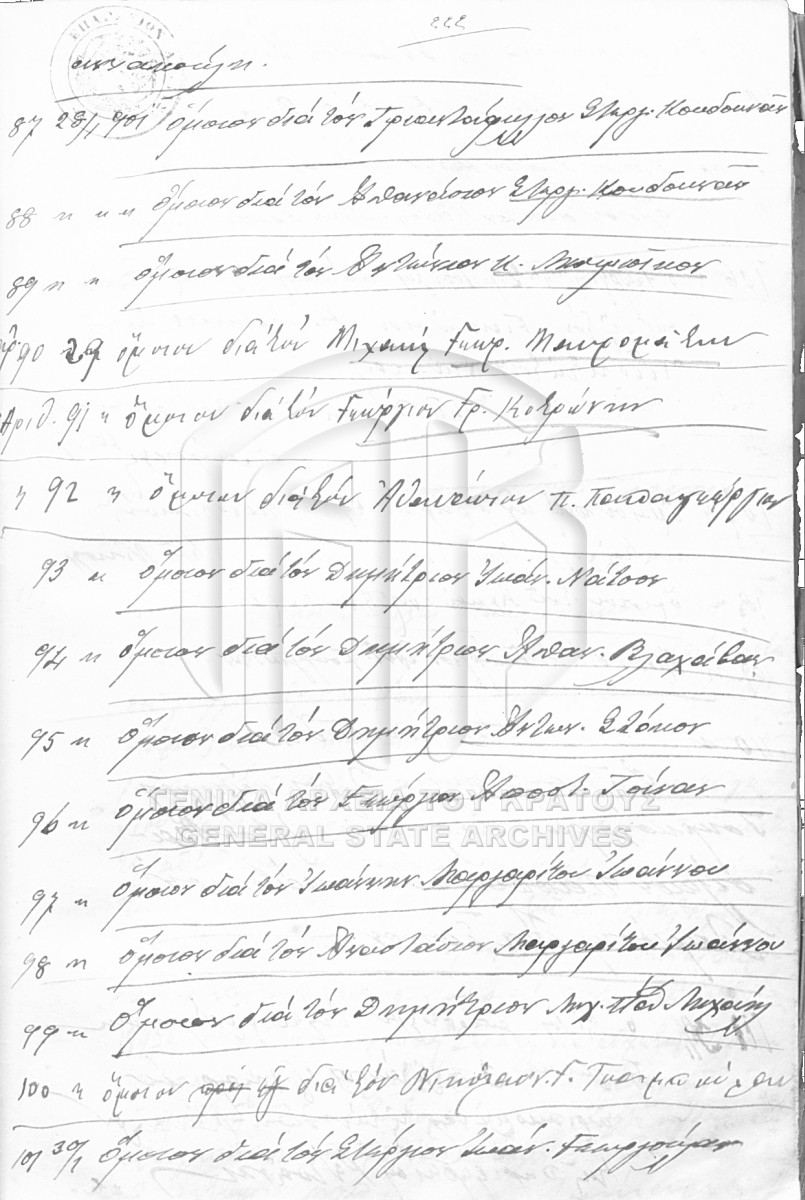 222
87 28/1 901 Ὅμοιον διά τόν Τριαντάφυλλον Στεργ. Κουδουνᾶν
88 " " " Ὅμοιον διά τόν Ἀθανάσιον Στεργ. Κουδουνᾶν
89 " " Ὅμοιον διά τόν Ἀντώνιον Κ.
90 29 ὅμοιον διά τόν Μιχαήλ Γεωρ. Μαυρομάτην
Ἀριθ. 91 " Ὅμοιον διά τόν Γεώργιον Γρ.
" 92 " Ὅμοιον διά τόν Ἀθανάσιον Π. Παπαγεωργίου
93 " Ὅμοιον διά τόν Δημήτριον Ἰωάν. Νάτσον
94 " Ὅμοιον διά τόν Δημήτριον Ἀθαν. Βλαχάβαν
95 " Ὅμοιον διά τόν Δημήτριον Ἀντων. Στόκον
96 " Ὅμοιον διά τόν Γεώργιον Ἀποστ. Τσίναν
ΓΕΝΙΚΑ ΑΡΧΕΙΑ ΤΟΥ ΚΡΑΤΟΥΣ
GENERAL STATE ARCHIVES
97 " Ὅμοιον διά τόν Ἰωάννην Μαργαρίτου Ἰωάννου
98 " Ὅμοιον διά τόν Ἀναστάσιον Μαργαρίτου Ἰωάννου
99 " Ὅμοιον διά τόν Δημήτριον Μιχ.
100 " ὅμοιον διά τόν Νικόλαον Γ.
101 30/1 Ὅμοιον διά τόν Στέργιον Ἰωάν.